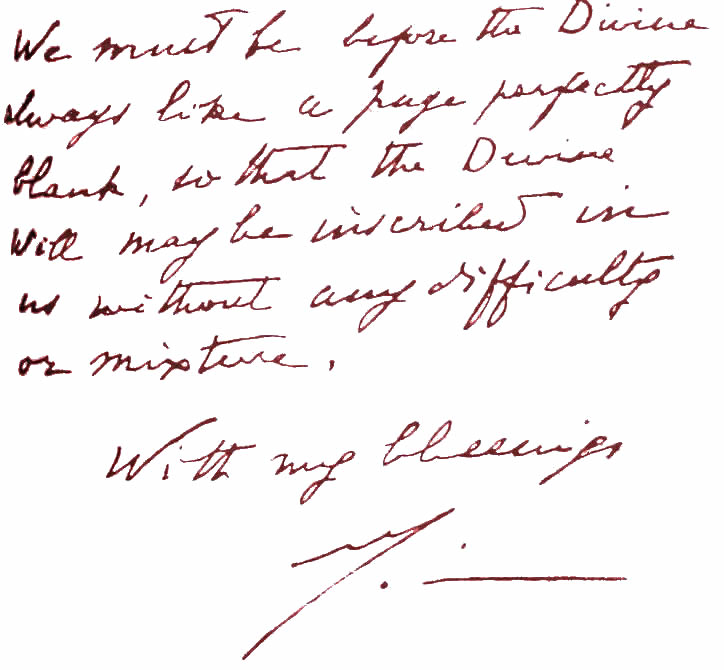 We must be before the Divine
always like a page perfectly
blank, so that the Divine
Will may be inscribed in
us without any difficulty
or mixture.
With my blessings